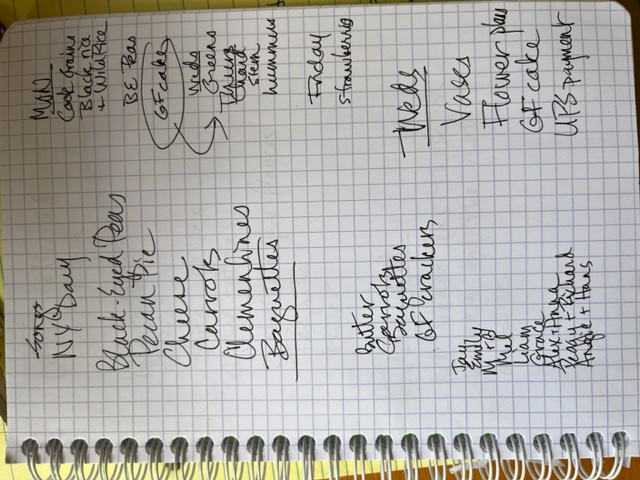 Songs
NY Day
Black-Eyed Peas
Pecan Pie
Cheese
Carrots
Clementines
Baguettes
Butter
Carrots
Baguettes
GF crackers
Emily
Liam
Grace
Peggy + Richard
Angie + Hans
MON
Cook Grains
Black rice
+ Wild Rice
BE Peas
GF cake
Weds
Greens
chard
stem
hummus
Friday
strawberries
Weds
Vases
Flower plan
GF cake
UPS payment